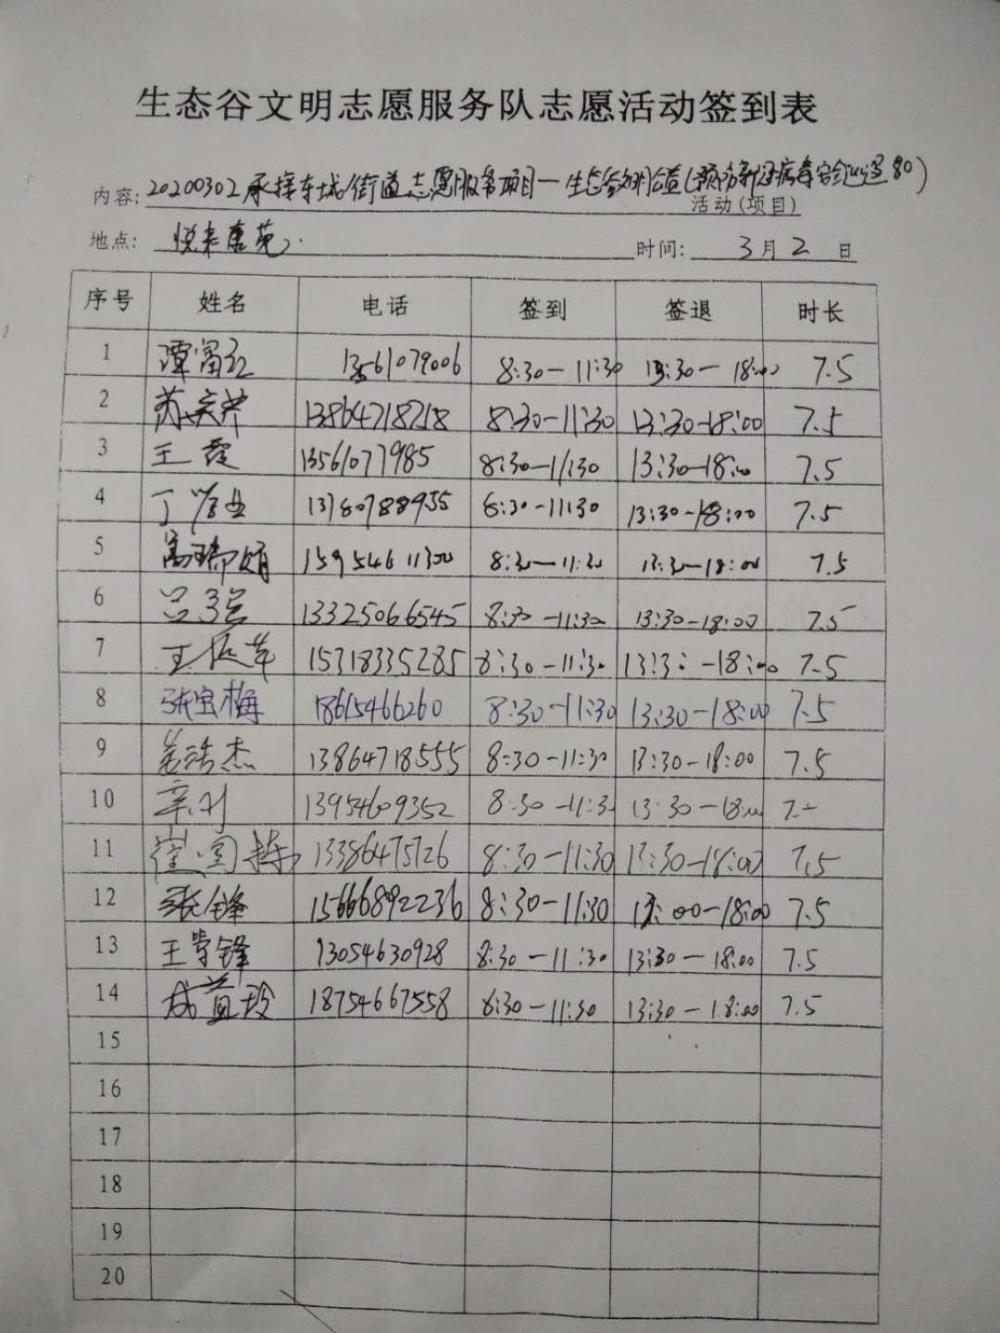 生态谷文明志愿服务队志愿活动签到表
内容: 20200302承接东城街道志愿服务项目—生态谷 公益(预防新冠病毒 80)
活动(项目)
地点: 悦来康苑 时间: 3月2日
序号 姓名 电话 签到 签退 时长
1 谭富红 13561079006 8:30—11:30 13:30—18:00 7.5
2 13864718218 8:30—11:30 13:30—18:00 7.5
3 王霞 13561077985 8:30—11:30 13:30—18:00 7.5
4 丁 13780788955 8:30—11:30 13:30—18:00 7.5
5 高瑞娟 15954611300 8:30—11:30 13:30—18:00 7.5
6 吕 13325066545 8:30—11:30 13:30—18:00 7.5
7 王 15318335285 8:30—11:30 13:30—18:00 7.5
8 张宝梅 18615466260 8:30—11:30 13:30—18:00 7.5
9 浩杰 13864718555 8:30—11:30 13:30—18:00 7.5
10 13954609352 8:30—11:30 13:30—18:00
11 国栋 13386475726 8:30—11:30 13:30—18:00 7.5
12 张锋 15666892236 8:30—11:30 00—18:00 7.5
13 王学锋 13054630928 8:30—11:30 13:30—18:00 7.5
14 成 玲 18754667558 8:30—11:30 13:30—18:00 7.5
15
16
17
18
19
20